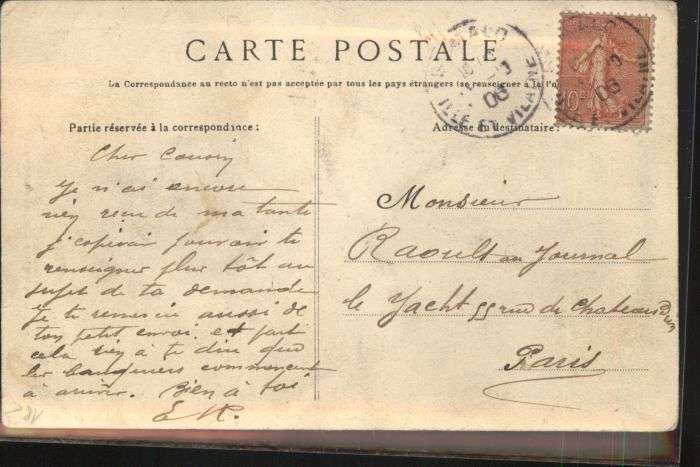 CARTE POSTALE
La Correspondance au recto n'est pas acceptée par tous les pays étrangers (se renseigner à la
Partie réservée à la correspondance :
Cher Cousin
Je n'ai encore
rien reçu de ma tante
j'espérais pouvoir te
renseigner plus tôt au
sujet de ta demande
je te remercie aussi de
ton petit envoi et part
cela rien à te dire que
les banquiers commencent
à arriver. Bien à toi
E R.
Adresse du destinataire :
Monsieur
Raoult au Journal
le Yacht 55 rue de Chateaudun
Paris
ILLE ET VILAINE
06
10c
06
VILAINE